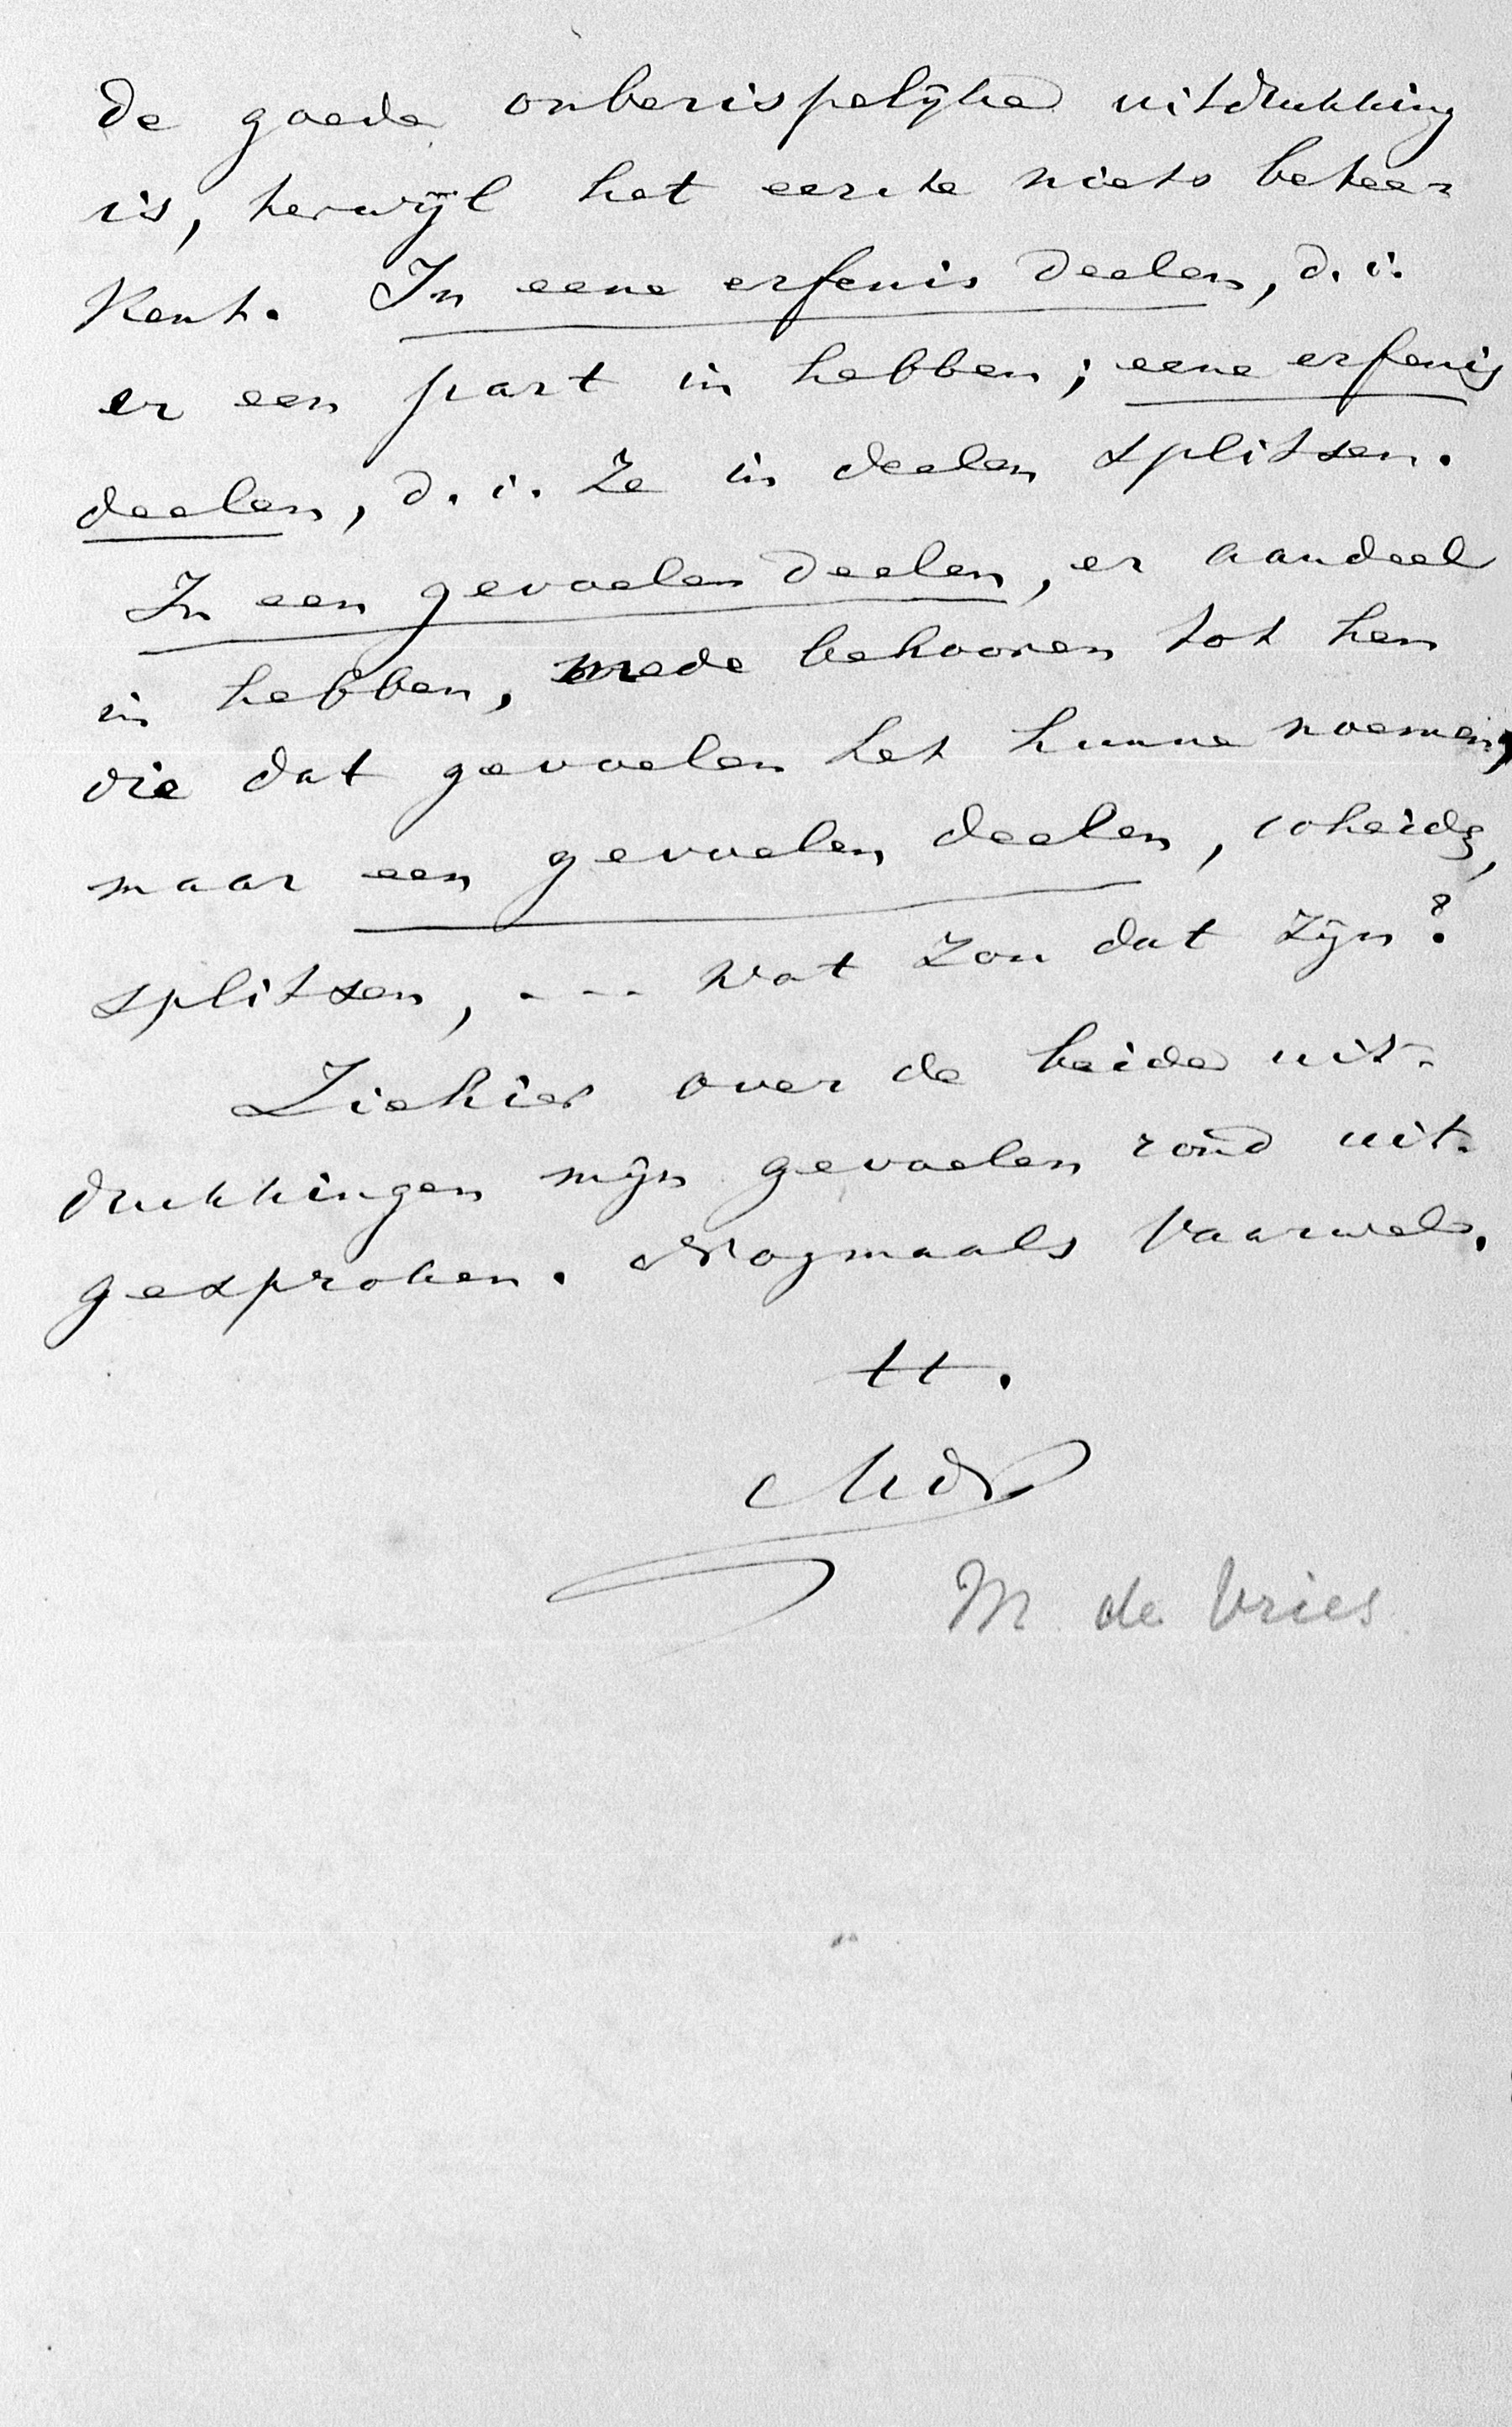 de goede onberispelijke uitdrukking
is, terwijl het eerste niets betee-
kent. In eene erfenis deelen, d. i.
er een part in hebben; eene erfenis
deelen, d. i. ze in deelen splitsen.
In een gevoelen deelen, er aandeel
in hebben, mede behooren tot hen
die dat gevoelen het hunne noemen;
maar een gevoelen deelen,
splitsen, - - - wat zou dat zijn?
Ziehier over de beide uit-
drukkingen mijn gevoelen rond uit-
gesproken. Nogmaals vaarwel.
tt.
MdV
M de Vries